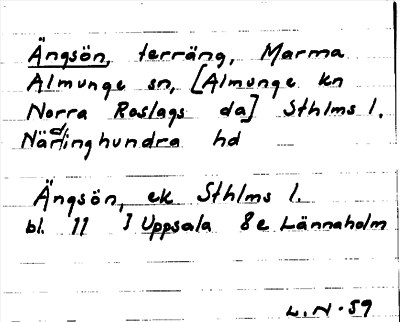 Ängsön, terräng, Marma
Almunge sn, [Almunge kn
Norra Roslags da] Sthlms l.
Närdinghundra hd
Ängsön, ek Sthlms l.
bl. 11 I Uppsala 8e Lännaholm
L.N. 59